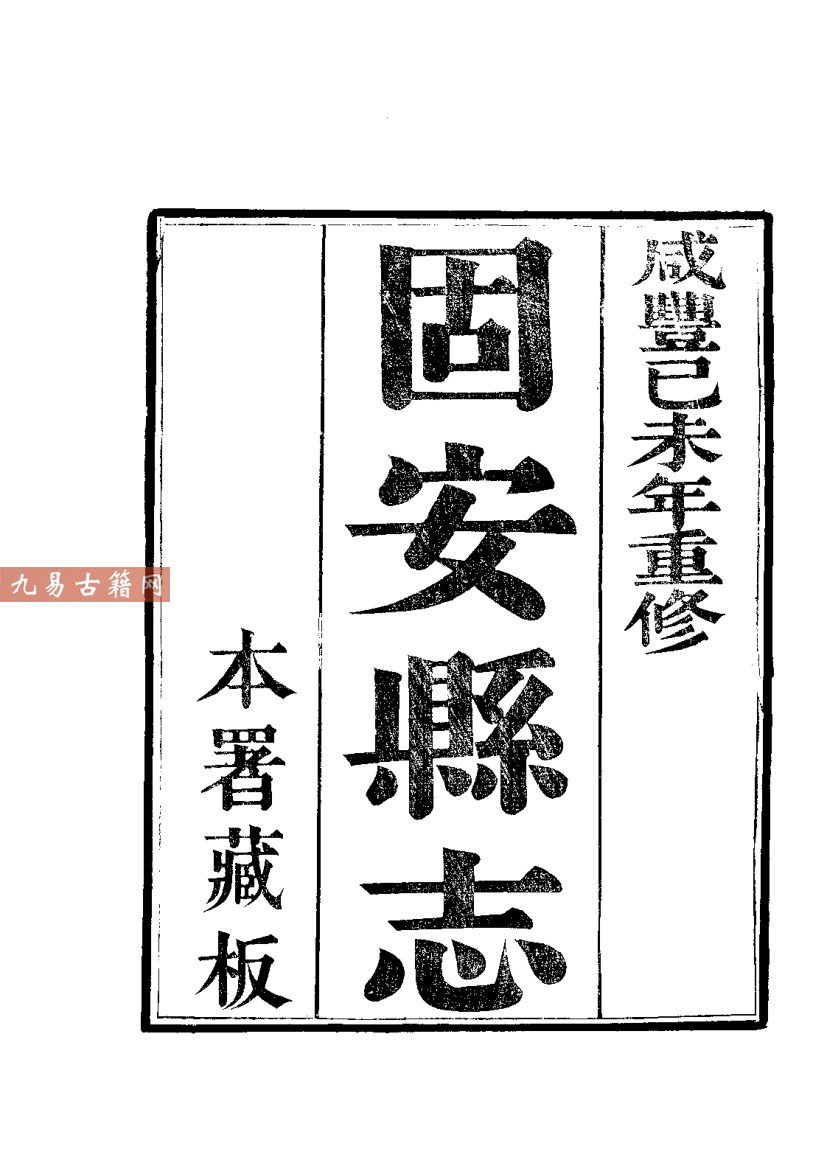 咸豐己未年重修
固安縣志
本署藏板
九易古籍网